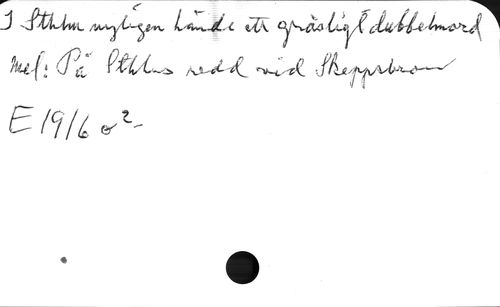 I Sthlm nyligen hände ett gräsligt dubbelmord
Mel: På Sthlms redd vid Skeppsbron
E 19/6 o 2-